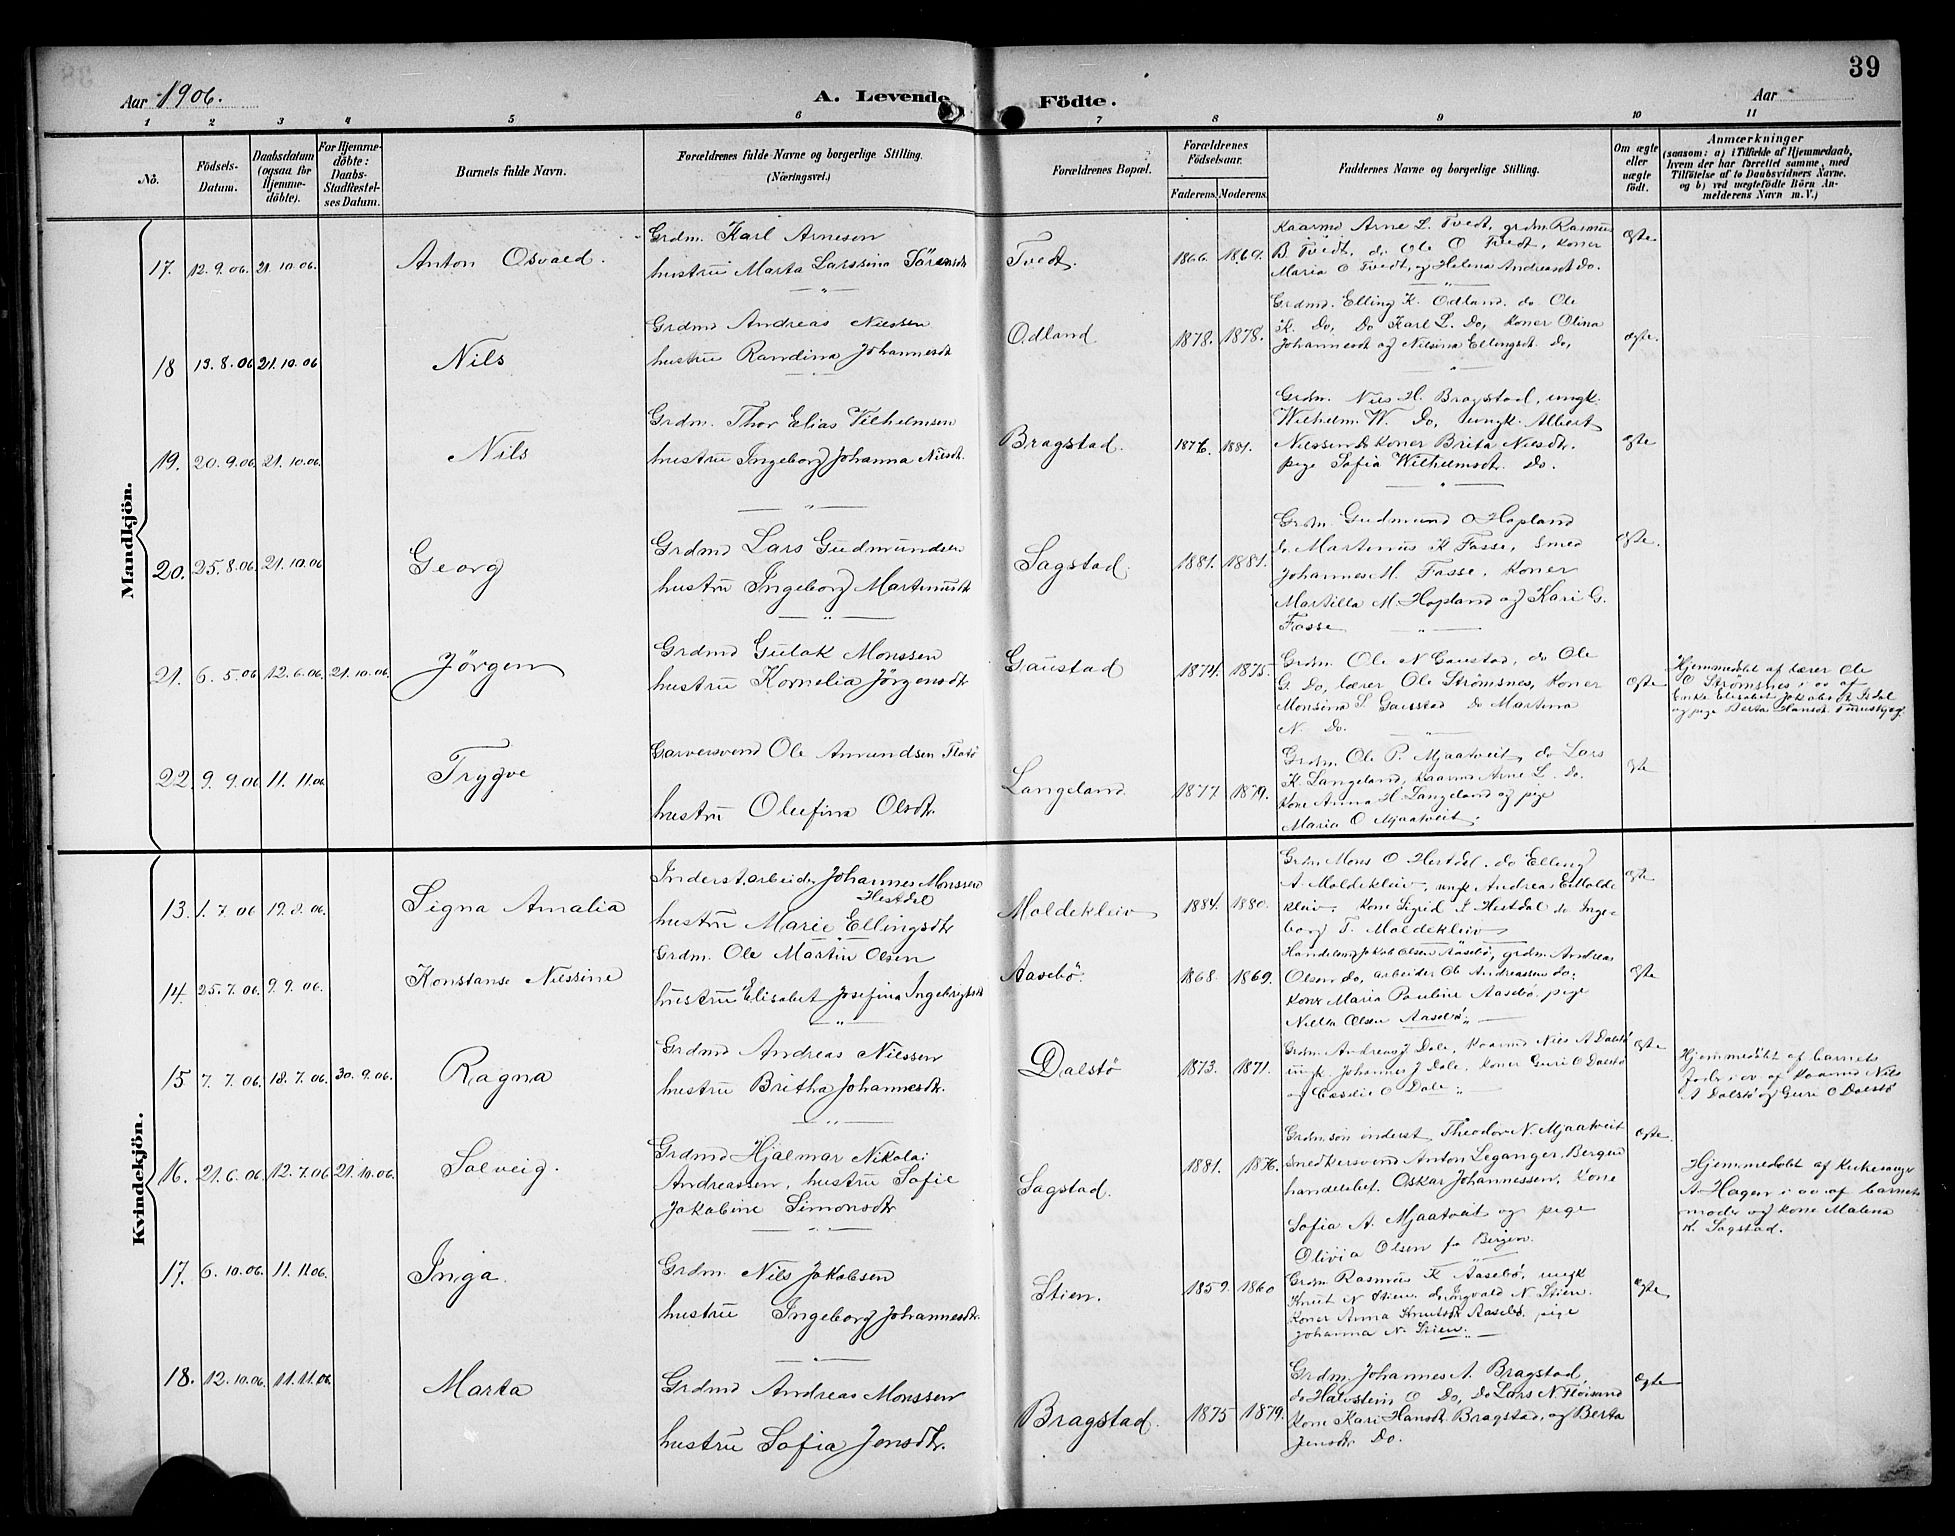 39
Aar 1906.
A. Levende Födte.
Aar
1 2 3 4 5 6 7 8 9 10 11
No.
Födsels-Datum.
Daabsdatum (ogsaa for Hjemme-döbte).
For Hjemme-döbte: Daabs-Stadfæstel-ses Datum.
Barnets fulde Navn.
Forældrenes fulde Navne og borgerlige Stilling.
(Næringsvei.)
Forældrenes Bopæl.
Forældrenes Födselsaar.
Faderens. Moderens.
Faddernes Navne og borgerlige Stilling.
Om ægte eller uægte födt.
Anmærkninger
(saasom: a) i Tilfælde af Hjemmedaab,
hvem der har forrettet samme, med
Tilföielse af to Daabsvidners Navne.
og b) ved uægtefödte Börn An-
melderens Navn m.V.)
Mandkjön.
17. 12.9.06. 21.10.06. Anton Osvald.
Grdm. Karl Arneson
hustru Marta Larssina Sörensdtr
Tvedt. 1866. 1869.
Kaarmd Arne L. Tvedt, grdm Rasmus
B Tvedt, do Ole O Tvedt, koner
Maria O Tvedt, og Helena Andreasdt Do.
Ægte
18 13.8.06 21.10.06 Nils
Grdmd Andreas Nilssen
hustru Randina Johannesdtr
Odland 1878. 1878.
Grdmd. Elling K. Odland. do Ole
K. Do, Do Karl L. Do, koner Olina
Johannesdt og Nilsina Ellingsdt Do,
Ægte.
19. 20.9.06 21.10.06. Nils
Grdm. Thor Elias Vilhelmsen
hustru Ingeborg Johanna Nilsdt.
Bragstad. 1876. 1881.
Grdm. Nils H. Bragstad, ungk.
Wilhelm W. Do, ungk. Albert
Nilssen Do koner Brita Nilsdtr.
pige Sofia Wilhelmsdtr. Do.
Ægte
20. 25.8.06. 21.10.06 Georg
Grdmd Lars Gudmundsen
hustru Ingeborg Martinusdtr
Sagstad. 1881. 1881.
Grdm. Gudmund O Hopland
do Martinus K Fosse, smed
Johannes M. Fosse, koner
Martilla M. Hopland og Kari G.
Fosse
Ægte.
21. 6.5.06 12.6.06. 21.10.06. Jörgen
Grdmd Gulak Monssen
hustru Kornelia Jörgensdtr
Gaustad 1874. 1875.
Grdm. Ole N Gaustad, do Ole
G. Do, lærer Ole Strömsnes, koner
Monsina S. Gaustad do Martina
N. Do.
Ægte
Hjemmedöbt af lærer Ole
O Strömsnes i ov af
Enke Elisabet Jakobsdt Isdal
og pige Berta Hansdt.
22. 9.9.06 11.11.06. Trygve
Garversvend Ole Amundsen Flatö
hustru Olufina Olsdtr.
Langeland. 1877. 1879.
Grdm. Ole P. Mjaatveit, do Lars
K. Langeland, Kaarmd Arne L. do.
kone Anna H. Langeland og pige
Maria O Mjaatveit.
Ægte
Kvindekjön.
13. 1.7.06 19.8.06. Signa Amalia
Inderst, arbeider Johannes Monssen
Hestdal
hustru Marie Ellingsdtr
Moldekleiv 1884. 1880.
Grdm Mons O Hestdal. do Elling
A. Moldekleiv, ungk Andreas E Molde
kleiv. kone Sigrid I Hestdal do Inge-
borg T. Moldekleiv
Ægte
14. 25.7.06. 9.9.06. Konstanse Nilssine
Grdm. Ole Martin Olsen
hustru Elisabet Josefina Ingebrigtsdt
Aasebö. 1868. 1869.
Jakob Olsen Aasebö, grdm Andreas
Olsen do, arbeider Ole Andreassen do.
kone Maria Pauline Aasebö, pige
Nilla Olsen Aasebö.
Ægte
15 7.7.06. 18.7.06. 30.9.06. Ragna
Grdmd Andreas Nilssen
hustru Britha Johannesdtr.
Dalstö 1873. 1871.
Grdm. Andreas J Dale, Kaarmd Nils A Dalstö
ungk. Johannes J Dale, koner Guri O Dalstö
og O Dale
Ægte
Hjemmedöbt af barnets
fader i ov af Kaarmd Nils
A Dalstö og Guri O Dalstö
16. 21.6.06. 12.7.06 21.10.06. Solveig.
Grdmd Hjalmar Nikolai
Andreassen, hustru Sofie
Jakobine Simonsdtr
Sagstad. 1881. 1876.
Grdmson inderst Theodor N. Mjaatveit
snedkersvend Anton Leganger, Bergen
handelsbet. Oskar Johannessen, kone
Sofia A. Mjaatveit og pige
Olivia Olsen fra Bergen.
Ægte.
Hjemmedöbt af kirkesanger
A. Hagen i ov af barnets
moder og kone Malena
K. Sagstad.
17. 6.10.06. 11.11.06. Inga.
Grdm. Nils Jakobsen
hustru Ingeborg Johannesdtr.
Stien. 1859. 1860
Grdm Rasmus K Aasebö, ungk
Knut N Stien do Ingvald N Stien.
koner Anna Knutsdt Aasebö. pige
Johanna N. Stien.
Ægte
18. 12.10.06. 11.11.06 Marta
Grdmd Andreas Monssen
hustru Sofia Jonsdtr.
Bragstad. 1875 1879.
Grdm. Johannes A. Bragstad,
do Halvstein O Do, Do Lars N Floisand
kone Kari Hansdt Bragstad, og Berta
Jensdtr Do.
Ægte